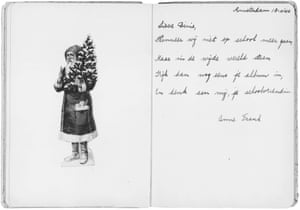 Amsterdam
Lieve Dinie,
Wanneer wij niet op school meer gaan,
Maar in de wijde wereld staan
Kijk dan nog eens je album in,
En denk aan mij, je schoolvriendin
Anne Frank